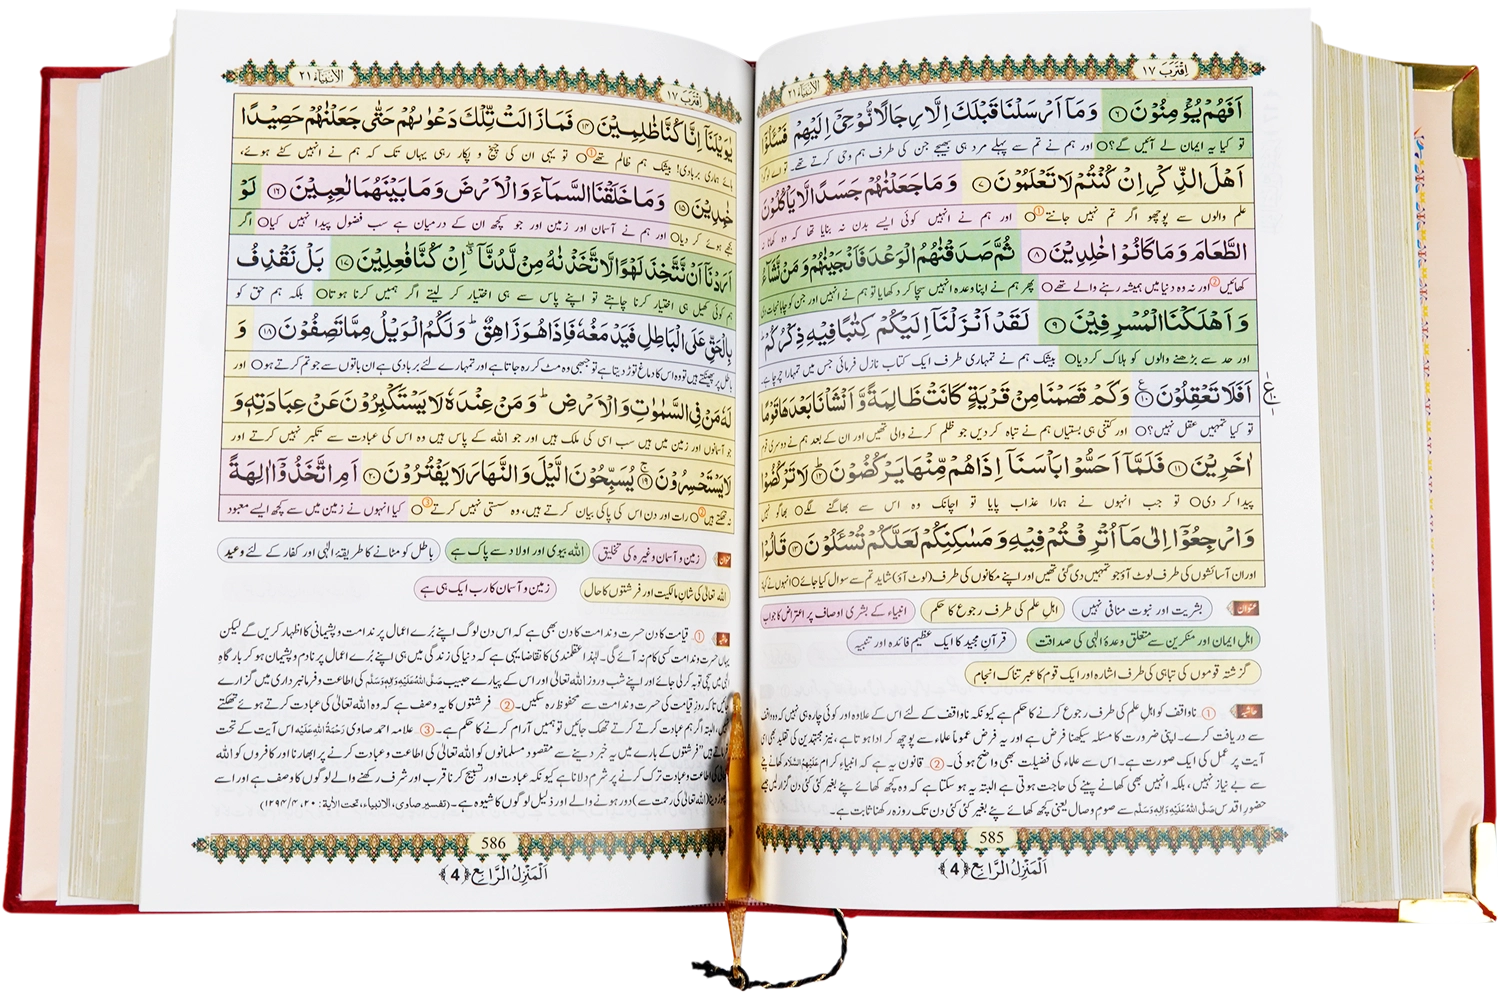 اِقْتَرَبَ ١٧
الأنبياء ٢١
اَفَهُمْ يُؤْمِنُوْنَ ٦ وَمَاۤ اَرْسَلْنَا قَبْلَكَ اِلَّا رِجَالًا نُّوْحِیْۤ اِلَیْهِمْ فَسْـَٔلُوْۤا
تو کیا یہ ایمان لے آئیں گے؟ اور ہم نے تم سے پہلے مرد ہی بھیجے جن کی طرف ہم وحی کرتے تھے۔ تو اے لوگو
اَهْلَ الذِّكْرِ اِنْ كُنْتُمْ لَا تَعْلَمُوْنَ ٧ وَمَا جَعَلْنٰهُمْ جَسَدًا لَّا یَاْكُلُوْنَ
علم والوں سے پوچھو اگر تم نہیں جانتے ① اور ہم نے انہیں کوئی ایسے بدن نہ بنایا تھا کہ وہ کھانا نہ
الطَّعَامَ وَمَا كَانُوْا خٰلِدِیْنَ ٨ ثُمَّ صَدَقْنٰهُمُ الْوَعْدَ فَاَنْجَیْنٰهُمْ وَمَنْ نَّشَآءُ
کھائیں ② اور نہ وہ دنیا میں ہمیشہ رہنے والے تھے پھر ہم نے اپنا وعدہ انہیں سچا کر دکھایا تو ہم نے انہیں اور جن کو چاہا نجات دی
وَاَهْلَكْنَا الْمُسْرِفِیْنَ ٩ لَقَدْ اَنْزَلْنَاۤ اِلَیْكُمْ كِتٰبًا فِیْهِ ذِكْرُكُمْ ؕ
اور حد سے بڑھنے والوں کو ہلاک کر دیا بیشک ہم نے تمہاری طرف ایک کتاب نازل فرمائی جس میں تمہارا چرچا ہے۔
اَفَلَا تَعْقِلُوْنَ ١٠ وَكَمْ قَصَمْنَا مِنْ قَرْیَةٍ كَانَتْ ظَالِمَةً وَّاَنْشَاْنَا بَعْدَهَا قَوْمًا
تو کیا تمہیں عقل نہیں؟ اور کتنی ہی بستیاں ہم نے تباہ کر دیں جو ظلم کرنے والی تھیں اور ان کے بعد ہم نے دوسری قوم
اٰخَرِیْنَ ١١ فَلَمَّاۤ اَحَسُّوْا بَاْسَنَاۤ اِذَا هُمْ مِّنْهَا یَرْكُضُوْنَ ١٢ لَا تَرْكُضُوْا
پیدا کر دی تو جب انہوں نے ہمارا عذاب پایا تو اچانک وہ اس سے بھاگنے لگے بھاگو نہیں
وَارْجِعُوْۤا اِلٰی مَاۤ اُتْرِفْتُمْ فِیْهِ وَمَسٰكِنِكُمْ لَعَلَّكُمْ تُسْـَٔلُوْنَ ١٣ قَالُوْا
اور ان آسائشوں کی طرف لوٹ آؤ جو تمہیں دی گئی تھیں اور اپنے مکانوں کی طرف (لوٹ آؤ) شاید تم سے سوال کیا جائے انہوں نے کہا:
عنوان بشریت اور نبوت منافی نہیں اہلِ علم کی طرف رجوع کا حکم انبیاء کے بشری اوصاف پر اعتراض کا جواب
اہلِ ایمان اور منکرین سے متعلق وعدۂ الٰہی کی صداقت قرآنِ مجید کا ایک عظیم فائدہ اور تنبیہ
گزشتہ قوموں کی تباہی کی طرف اشارہ اور ایک قوم کا عبرتناک انجام
حاشیہ ① ناواقف کو اہلِ علم کی طرف رجوع کرنے کا حکم ہے کیونکہ ناواقف کے لئے اس کے علاوہ اور کوئی چارہ ہی نہیں کہ وہ واقف
سے دریافت کرے۔ اپنی ضرورت کا مسئلہ سیکھنا فرض ہے اور یہ فرض عموماً علماء سے پوچھ کر ادا ہوتا ہے، نیز مجتہدین کی تقلید بھی اسی
آیت پر عمل کی ایک صورت ہے۔ اس سے علماء کی فضیلت بھی واضح ہوئی۔ ② قانون یہ ہے کہ انبیاءِ کرام عَلَیْهِمُ السَّلَام کھانے پینے
سے بے نیاز نہیں، بلکہ انہیں بھی کھانے پینے کی حاجت ہوتی ہے البتہ یہ ہو سکتا ہے کہ وہ کچھ کھائے پئے بغیر کئی کئی دن گزار لیں جیسے
حضورِ اقدس صَلَّی اللهُ عَلَیْهِ وَاٰلِهٖ وَسَلَّم سے صومِ وصال یعنی کچھ کھائے پئے بغیر کئی کئی دن تک روزہ رکھنا ثابت ہے۔
585
اَلْمَنْزِلُ الرَّابِع ﴿4﴾
الأنبياء ٢١
اِقْتَرَبَ ١٧
یٰوَیْلَنَاۤ اِنَّا كُنَّا ظٰلِمِیْنَ ١٤ فَمَا زَالَتْ تِّلْكَ دَعْوٰىهُمْ حَتّٰی جَعَلْنٰهُمْ حَصِیْدًا
ہائے ہماری بربادی! بیشک ہم ظالم تھے ① تو یہی ان کی چیخ و پکار رہی یہاں تک کہ ہم نے انہیں کٹے ہوئے،
خٰمِدِیْنَ ١٥ وَمَا خَلَقْنَا السَّمَآءَ وَالْاَرْضَ وَمَا بَیْنَهُمَا لٰعِبِیْنَ ١٦ لَوْ
بجھے ہوئے کر دیا اور ہم نے آسمان اور زمین اور جو کچھ ان کے درمیان ہے سب فضول پیدا نہیں کیا اگر
اَرَدْنَاۤ اَنْ نَّتَّخِذَ لَهْوًا لَّاتَّخَذْنٰهُ مِنْ لَّدُنَّاۤ اِنْ كُنَّا فٰعِلِیْنَ ١٧ بَلْ نَقْذِفُ
ہم کوئی کھیل ہی اختیار کرنا چاہتے تو اپنے پاس سے ہی اختیار کر لیتے اگر ہمیں کرنا ہوتا بلکہ ہم حق کو
بِالْحَقِّ عَلَی الْبَاطِلِ فَیَدْمَغُهٗ فَاِذَا هُوَ زَاهِقٌ ؕ وَلَكُمُ الْوَیْلُ مِمَّا تَصِفُوْنَ ١٨ وَ
باطل پر پھینکتے ہیں تو وہ اس کا دماغ توڑ دیتا ہے تو جبھی وہ مٹ کر رہ جاتا ہے اور تمہارے لئے بربادی ہے ان باتوں سے جو تم کرتے ہو اور
لَهٗ مَنْ فِی السَّمٰوٰتِ وَالْاَرْضِ ؕ وَمَنْ عِنْدَهٗ لَا یَسْتَكْبِرُوْنَ عَنْ عِبَادَتِهٖ وَ
جو آسمانوں اور زمین میں ہیں سب اسی کی ملک ہیں اور جو اللہ کے پاس ہیں وہ اس کی عبادت سے تکبر نہیں کرتے اور
لَا یَسْتَحْسِرُوْنَ ١٩ یُسَبِّحُوْنَ الَّیْلَ وَالنَّهَارَ لَا یَفْتُرُوْنَ ٢٠ اَمِ اتَّخَذُوْۤا اٰلِهَةً
نہ تھکتے ہیں ② رات اور دن اس کی پاکی بیان کرتے ہیں، وہ سستی نہیں کرتے ③ کیا انہوں نے زمین میں سے کچھ ایسے معبود
عنوان زمین و آسمان وغیرہ کی تخلیق اللہ بیوی اور اولاد سے پاک ہے باطل کو مٹانے کا طریقۂ الٰہی اور کفار کے لئے وعید
اللہ تعالیٰ کی شانِ مالکیت اور فرشتوں کا حال زمین و آسمان کا رب ایک ہی ہے
حاشیہ ① قیامت کا دن حسرت و ندامت کا دن بھی ہے کہ اس دن لوگ اپنے بُرے اعمال پر ندامت و پشیمانی کا اظہار کریں گے لیکن
یہاں حسرت و ندامت کسی کام نہ آئے گی۔ لہٰذا عقلمندی کا تقاضا یہی ہے کہ دنیا کی زندگی میں ہی اپنے بُرے اعمال پر نادم و پشیمان ہو کر بارگاہِ
الٰہی میں سچی توبہ کر لی جائے اور اپنے شب و روز اللہ تعالیٰ اور اس کے پیارے حبیب صَلَّی اللهُ عَلَیْهِ وَاٰلِهٖ وَسَلَّم کی اطاعت و فرمانبرداری میں گزارے
جائیں تاکہ روزِ قیامت کی حسرت و ندامت سے محفوظ رہ سکیں۔ ② فرشتوں کا یہ وصف ہے کہ وہ اللہ تعالیٰ کی عبادت کرتے ہوئے تھکتے
نہیں، البتہ اگر ہم عبادت کرتے کرتے تھک جائیں تو ہمیں آرام کرنے کا حکم ہے۔ ③ علامہ احمد صاوی رَحْمَةُ اللهِ عَلَیْه اس آیت کے تحت
فرماتے ہیں "فرشتوں کے بارے میں یہ خبر دینے سے مقصود مسلمانوں کو اللہ تعالیٰ کی اطاعت و عبادت کرنے پر ابھارنا اور کافروں کو اللہ
تعالیٰ کی اطاعت و عبادت ترک کرنے پر شرم دلانا ہے کیونکہ عبادت اور تسبیح کرنا قرب اور شرف رکھنے والے لوگوں کا وصف ہے اور اسے
چھوڑ دینا (اللہ تعالیٰ کی رحمت سے) دور ہونے والے اور ذلیل لوگوں کا شیوہ ہے۔ (تفسیر صاوی، الانبیاء، تحت الآیة: ٢٠، ٤/١٢٩٤)
586
اَلْمَنْزِلُ الرَّابِع ﴿4﴾